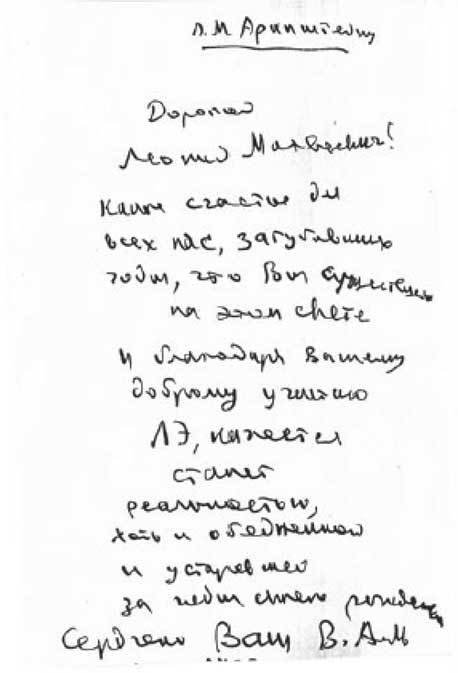 Л.М Аринштейну
Дорогой
Леонид Матвеевич!
Какое счастье для
всех нас, загубивших
годы, что Вы существуете
на этом свете
и благодаря Вашему
доброму участию
ЛЭ, кажется
станет
реальностью,
хоть и обедненной
и устаревшей
за годы своего рождения
Сердечно Ваш В.